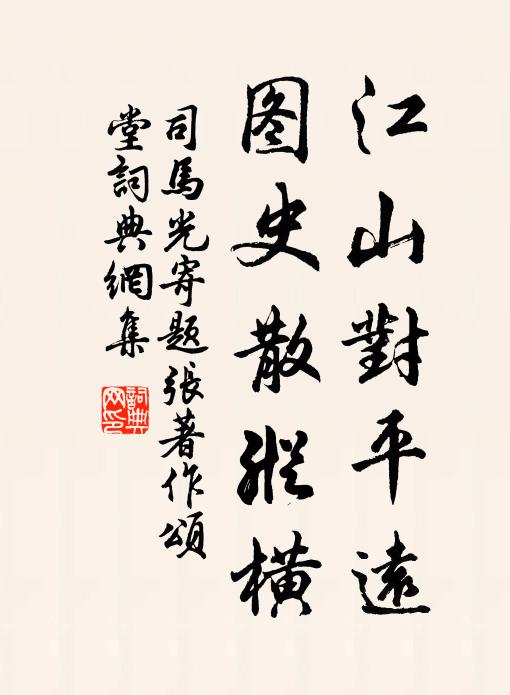 江山對平遠
图史散縱橫
司馬光寄题張著作頌
堂詞典網集
詞典网印